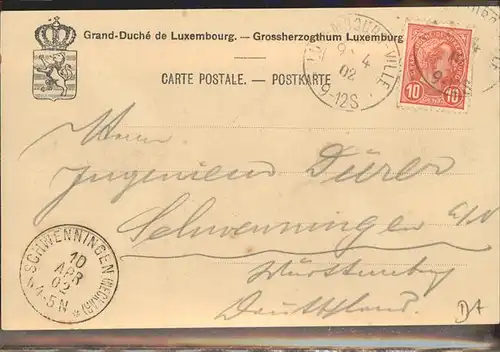 Grand-Duché de Luxembourg. — Grossherzogthum Luxemburg
CARTE POSTALE. — POSTKARTE
LUXEMBOURG-VILLE
9 4
02
9-12S
10 10
Herrn
Ingenieur Dürer
Schwenningen a/N
Württemberg
Deutschland.
SCHWENNINGEN (NECKAR)
10
APR
02
4-5N
DA